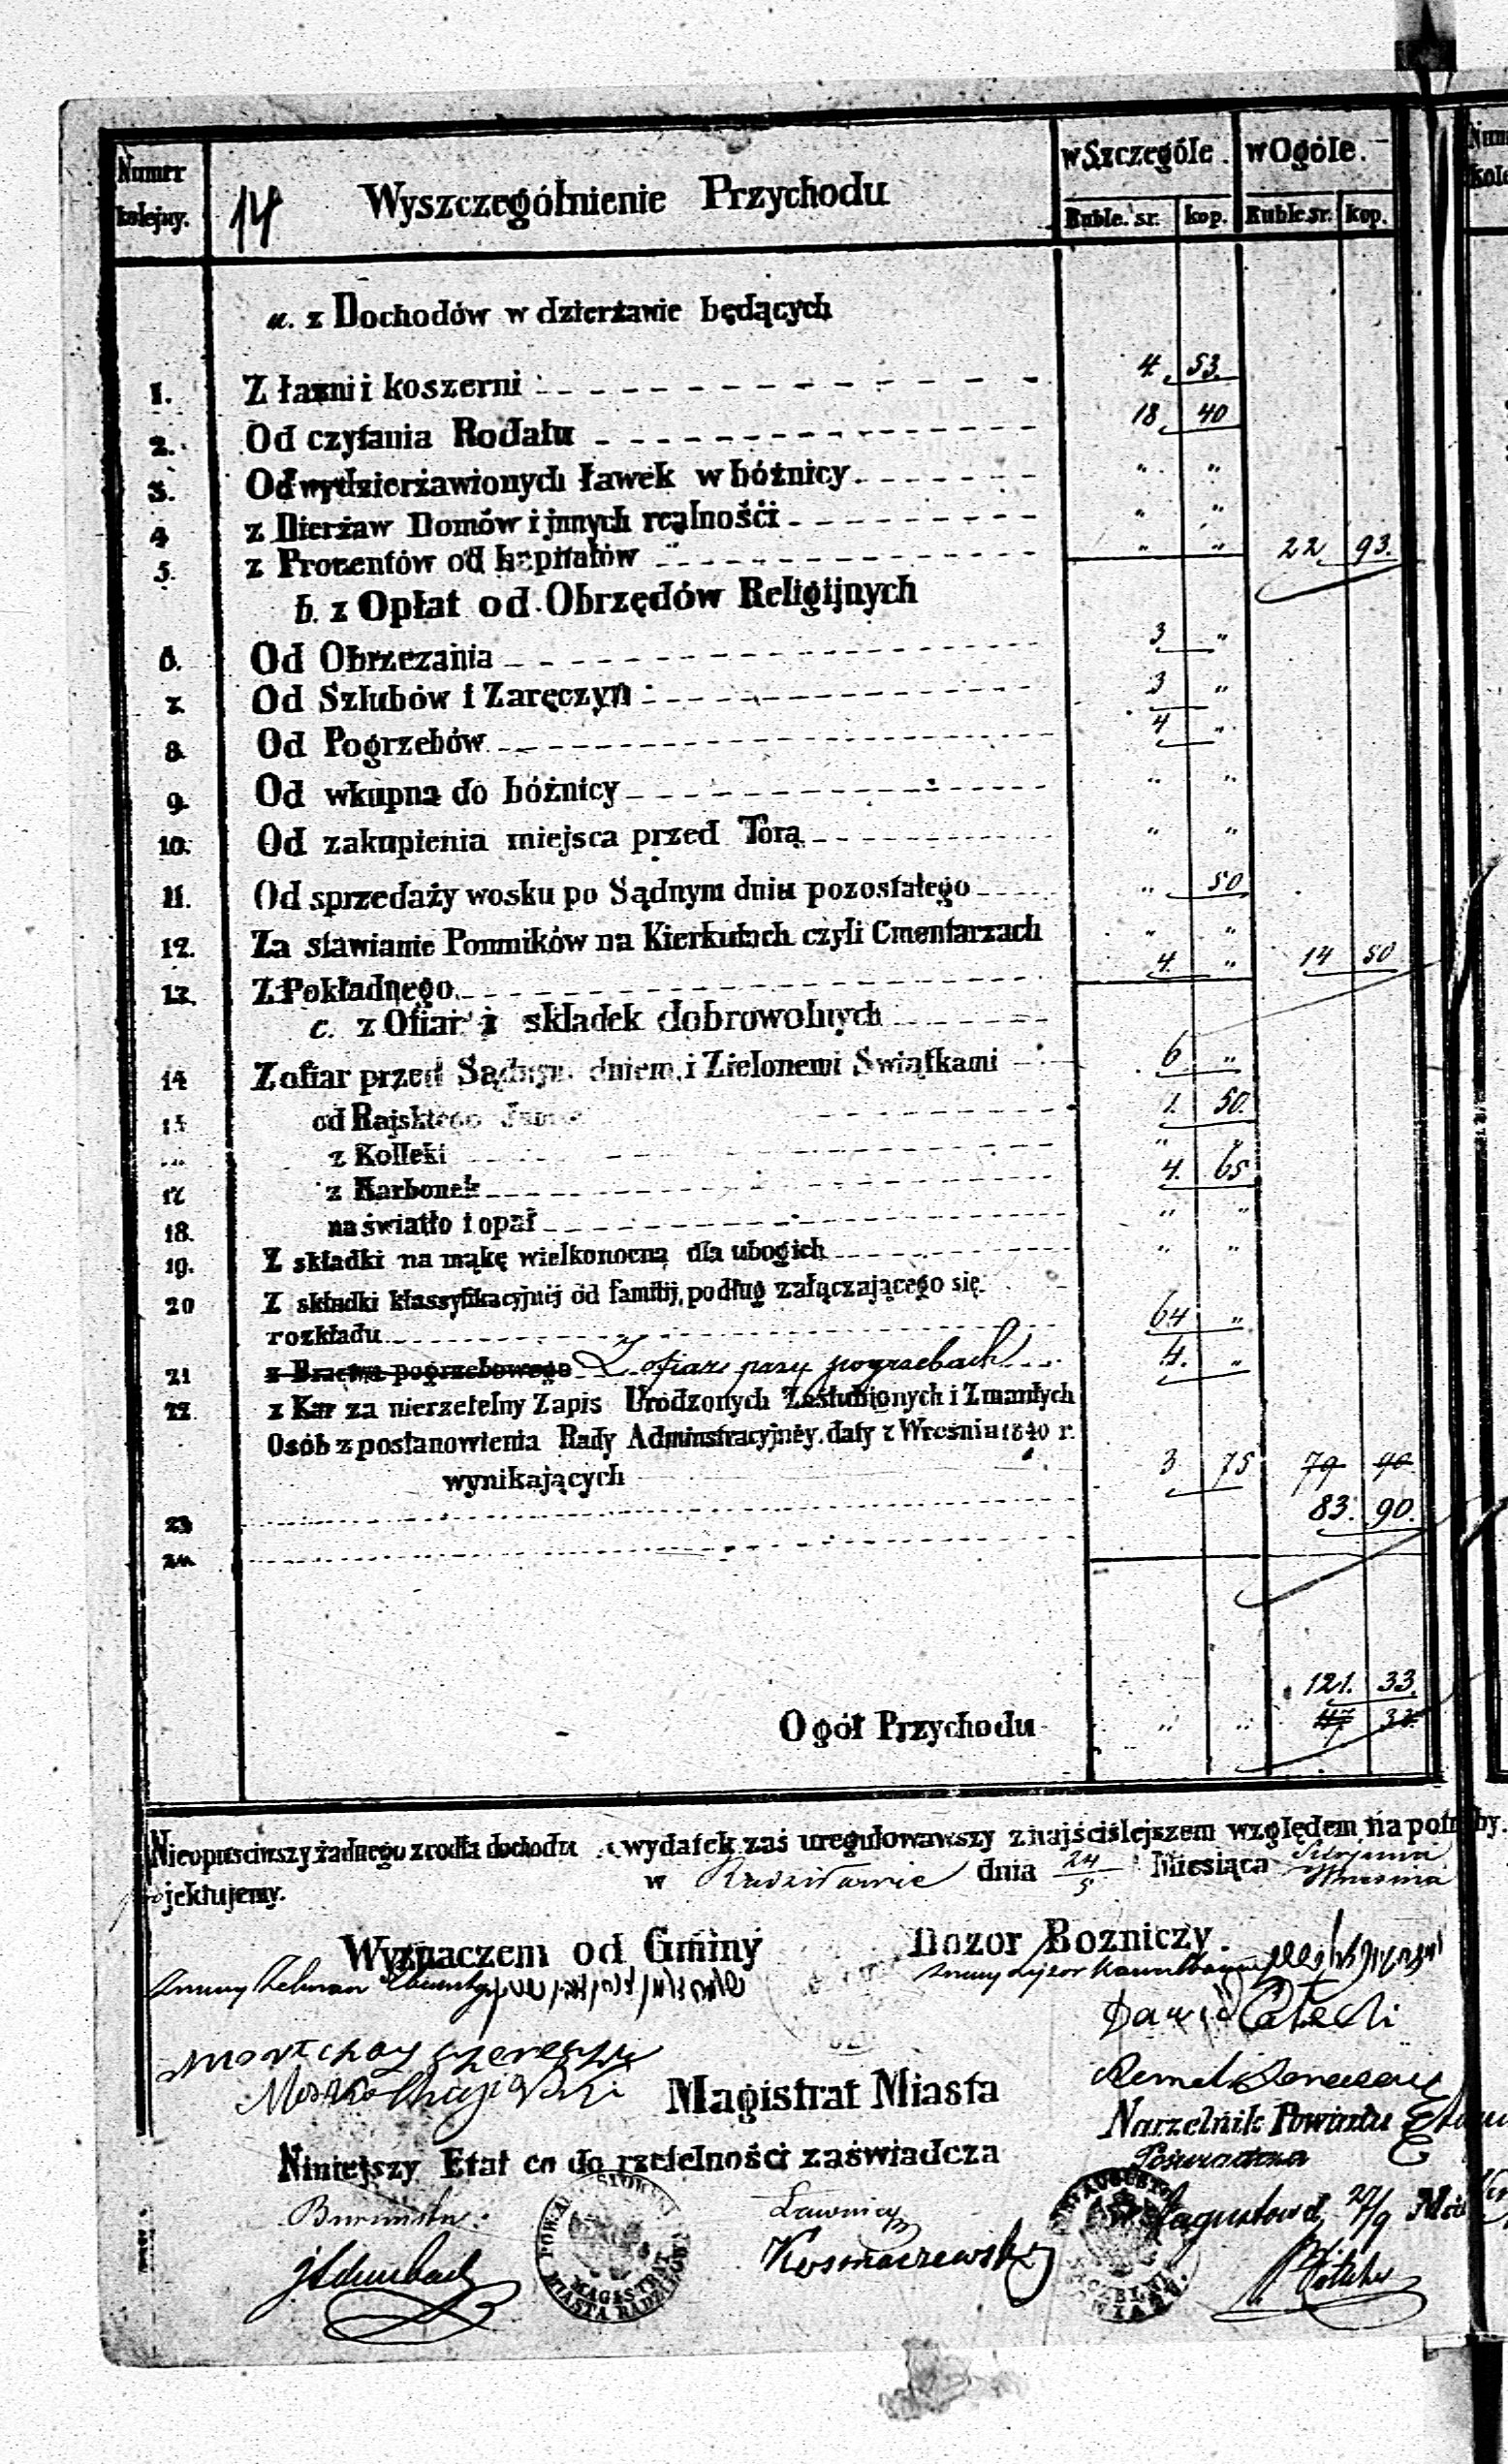 Numer kolejny. 14 Wyszczególnienie Przychodu w Szczególe. w Ogóle.
Ruble. sr. kop. Ruble. sr. kop.
a. z Dochodów w dzierżawie będących
1. Z łaźni i koszerni 4 53.
2. Od czytania Rodału 18 40
3. Od wydzierżawionych ławek w bóżnicy " "
4 z Dierżaw Domów i jnnych realnośći " "
5. z Procentów od kapitałów " " 22 93.
b. z Opłat od Obrzędów Religijnych
6. Od Obrzezania 3 "
7. Od Szlubów i Zaręczyn 3 "
8 Od Pogrzebów 4 "
9. Od wkupna do bóżnicy " "
10. Od zakupienia miejsca przed Torą " "
11. Od sprzedaży wosku po Sądnym dniu pozostałego " 50
12. Za stawianie Pomników na Kierkutach czyli Cmentarzach " "
13. Z Pokładnego 4. " 14 50
c. z Ofiar i składek dobrowolnych
14 Z ofiar przed Sądnym dniem, i Zielonemi Swiątkami 6 "
15 od Rajskiego 1. 50.
z Kolleki " "
17 z Karbonek 4. 65
18. na światło i opał " "
19. Z składki na mąkę wielkonocną dla ubogich " "
20 Z składki klassyfikacyjnéj od familij, podług załączającego się
rozkładu 64 "
21 z Bractwa pogrzebowego Z ofiar przy pogrzebach 4. "
22 z Kar za nierzetelny Zapis Urodzonych Zaślubionych i Zmarłych
Osób z postanowienia Rady Adminstracyjnéy, daty z Wreśnia 1840 r.
wynikających 3 75 79 90
83. 90.
23
24
121. 33.
Ogół Przychodu " " 117 33.
Nieopuściwszy żadnego zrodła dochodu a wydatek zaś uregulowawszy z najściślejszem względem na potrzeby.
projektujemy. w Radziłowie dnia 24/5 Miesiąca Sierpnia
Wrzesnia
Wyznaczem od Gminy Dozor Bozniczy.
Dawid
Magistrat Miasta
Naczelnik Powiatu
Niniejszy Etat co do rzetelności zaświadcza
Poświadcza
Burmistrz. Ławnicy
Augustowo d. 27/9
Kosmaczewski
MAGISTRAT
MIASTA RADZIŁOW